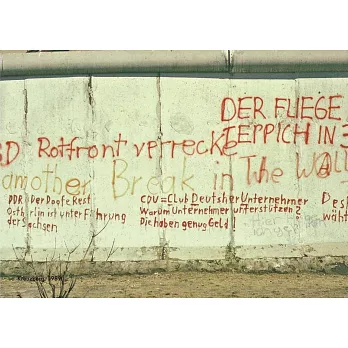 DER FLIEGE
TEPPICH IN
Rotfront verrecke
another Break in The WALL
DDR: Der Doofe Rest
Ostberlin ist unter Führung
der Sachsen
CDU = Club Deutsher Unternehmer
Warum Unternehmer unterstützen?
Die haben genug Geld!